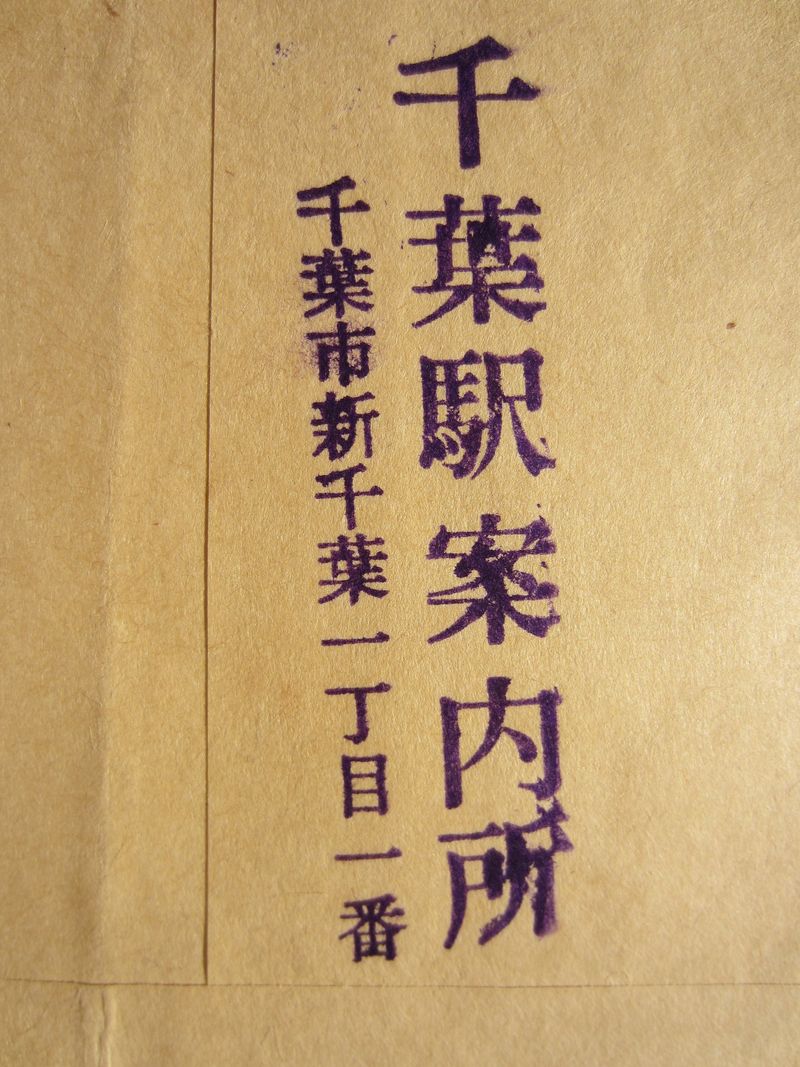 千葉駅案内所
千葉市新千葉一丁目一番